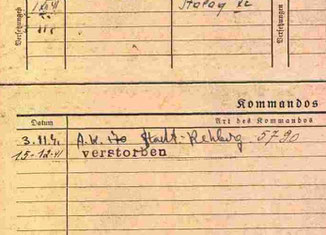 Versetzungen
Stalag
Versetzungen
Kommandos
Datum
Art des Kommandos
3.11.41 A.K. 170 Stadt-Rehberg 5790
15.12.41 verstorben